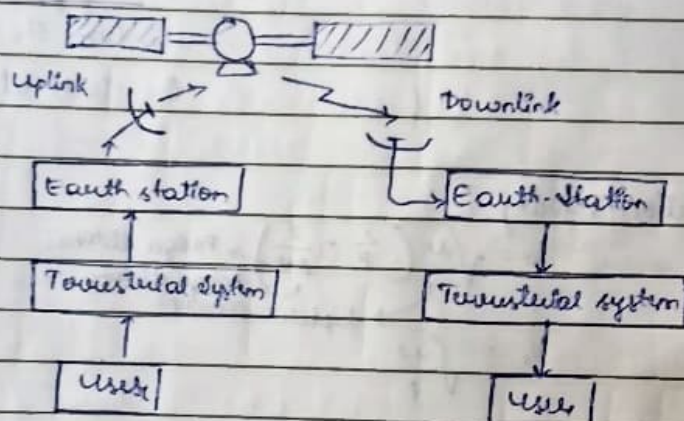 Uplink
Downlink
Earth station
Earth-Station
Terrestrial System
Terrestrial system
User
User